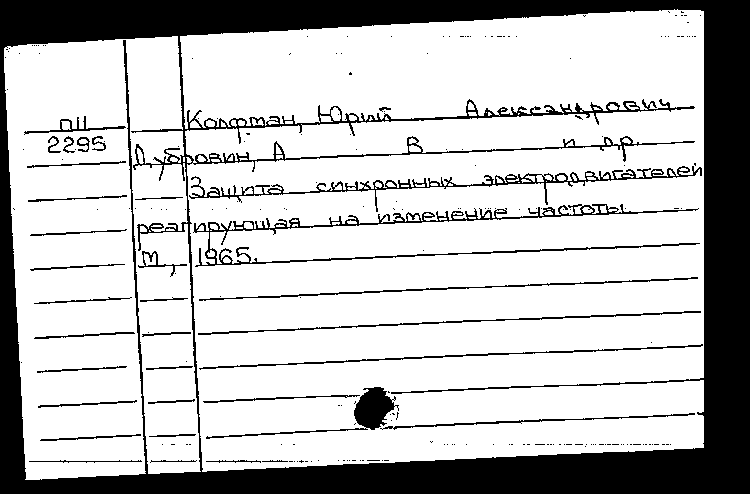 ПII Колфман, Юрий Александрович
2295 Дубровин, А В и др.
Защита синхронных электродвигателей
реагирующая на изменение частоты.
М, 1965.